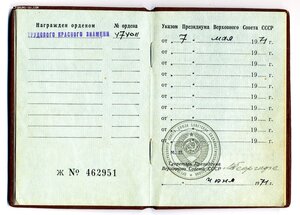 Награжден орденом № ордена
ТРУДОВОГО КРАСНОГО ЗНАМЕНИ
Ж № 462951
Указом Президиума Верховного Совета СССР
от 7 мая 1971 г.
от 19 г.
от 19 г.
от 19 г.
от 19 г.
от 19 г.
от 19 г.
от 19 г.
М. П.
Секретарь Президиума
Верховного Совета СССР